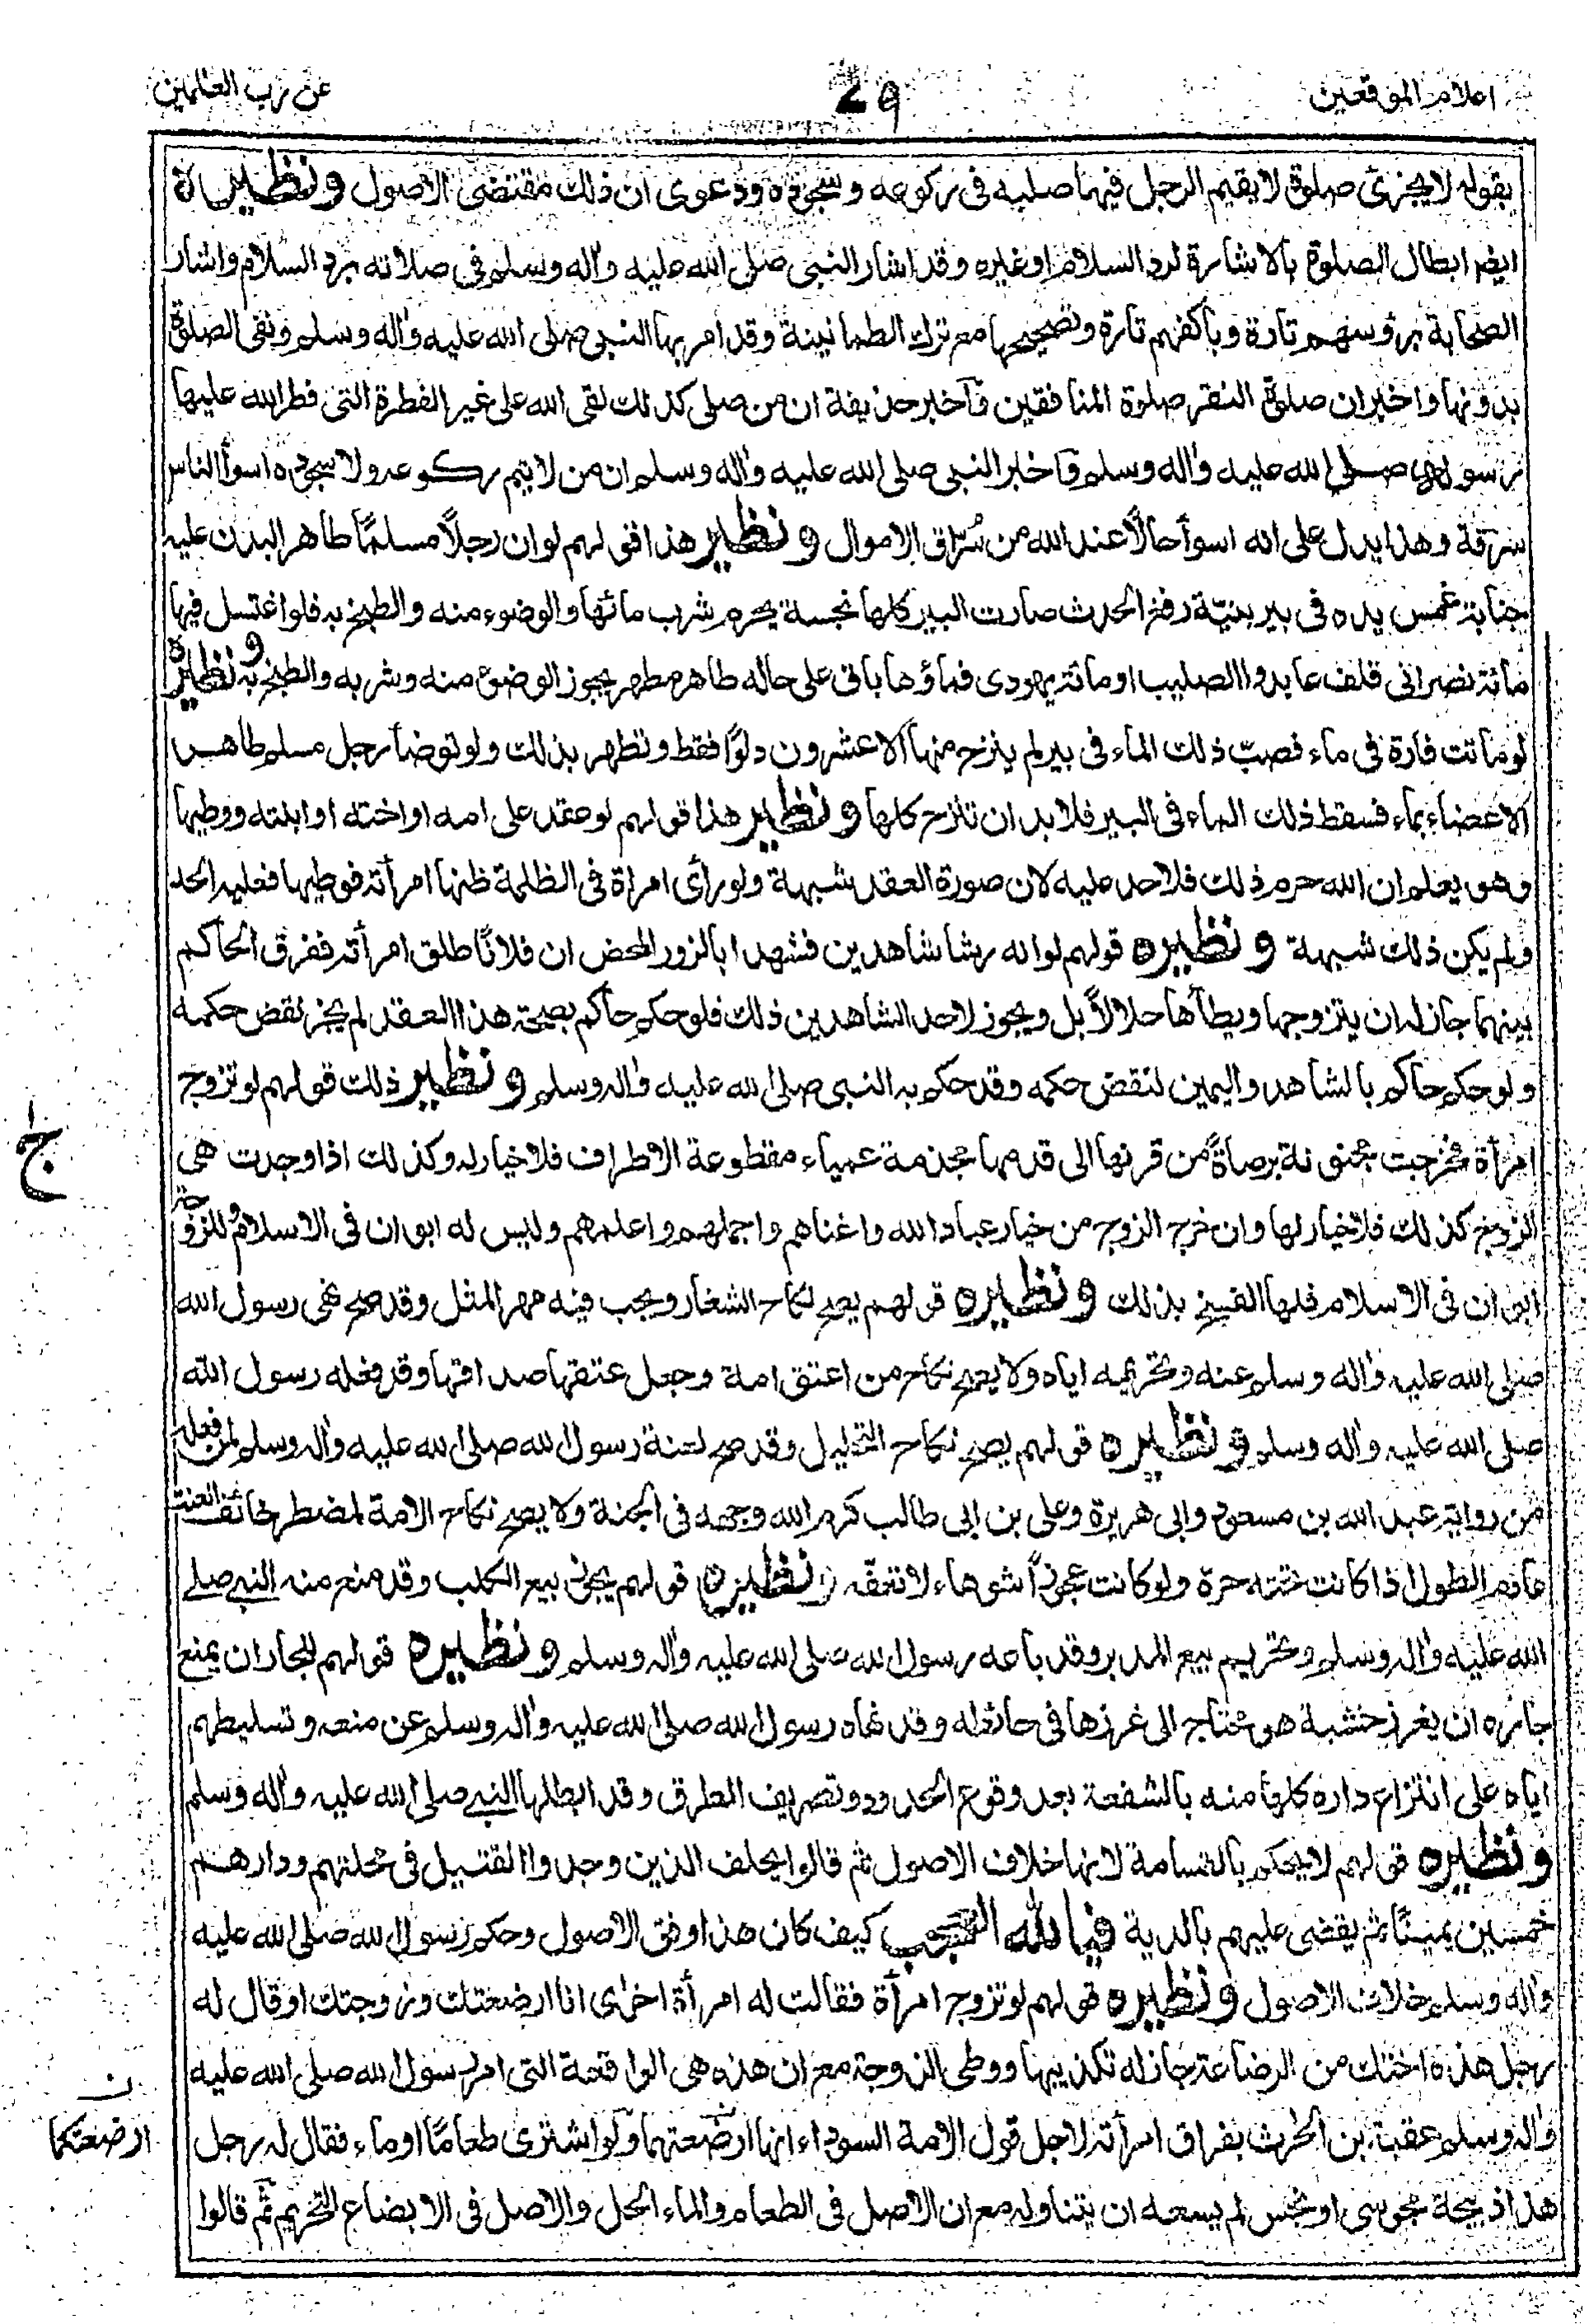 اعلام الموقعين
عن رب العلمين
بقوله لا يجزئ صلوة لا يقيم الرجل فيها صلبه فى ركوعه وسجوده ودعوى ان ذلك مقتضى الاصول ونظيره
ايضا ابطال الصلوة بالاشارة لرد السلام او غيره وقد اشار النبى صلى الله عليه واله وسلم فى صلاته برد السلام واشار
الصحابة برؤسهم تارة وباكفهم تارة وتصحيحها مع ترك الطمانينة وقد امر بها النبى صلى الله عليه واله وسلم ونفى الصلوة
بدونها واخبر ان صلوة النقر صلوة المنافقين واخبر حذيفة ان من صلى كذلك لقى الله على غير الفطرة التى فطر الله عليها
رسوله صلى الله عليه واله وسلم فاخبر النبى صلى الله عليه واله وسلم ان من لا يتم ركوعه ولا سجوده اسوأ الناس
سرقة وهذا يدل على انه اسوأ حالا عند الله من سراق الاموال ونظير هذا قولهم لو ان رجلا مسلما طاهر البدن عليه
جنابة غمس يده فى بير بنيّة رفع الحدث صارت البير كلها نجسة يحرم شرب مائها والوضوء منه والطبخ به فلو اغتسل فيها
مائة نصرانى قلف عابدوا الصليب او مائة يهودى فماؤها باقى على حاله طاهر مطهر يجوز الوضوء منه وشربه والطبخ به ونظيره
لو ماتت فارة فى ماء فصبّ ذلك الماء فى بير لم ينزح منها الا عشرون دلوا فقط وتطهر بذلك ولو توضأ رجل مسلم طاهر
الاعضاء بماء فسقط ذلك الماء فى البير فلا بد ان تنزح كلها ونظير هذا قولهم لو عقد على امه او اخته او ابنته ووطيها
وهو يعلم ان الله حرم ذلك فلا حد عليه لان صورة العقد شبهة ولو رأى امراة فى الظلمة ظنها امرأته فوطيها فعليه الحد
ولم يكن ذلك شبهة ونظيره قولهم لو انه رشا شاهدين فشهدا بالزور المحض ان فلانا طلق امرأته ففرق الحاكم
بينهما جاز له ان يتزوجها ويطأها حلالا بل ويجوز لاحد الشاهدين ذلك فلو حكم حاكم بصحة هذا العقد لم يجز نقض حكمه
ولو حكم حاكم بالشاهد واليمين لنقض حكمه وقد حكم به النبى صلى الله عليه واله وسلم ونظير ذلك قولهم لو تزوج
امرأة فخرجت مجنونة برصاة من قرنها الى قدمها مجذمة عمياء مقطوعة الاطراف فلا خيار له وكذلك اذا وجدت هى
الزوج كذلك فلا خيار لها وان خرج الزوج من خيار عباد الله واغناهم واجملهم واعلمهم وليس له ابوان فى الاسلام وللزوجة
ابوان فى الاسلام فلها الفسخ بذلك ونظيره قولهم يصح نكاح الشغار ويجب فيه مهر المثل وقد صح نهى رسول الله
صلى الله عليه واله وسلم عنه وتحريمه اياه ولا يصح نكاح من اعتق امة وجعل عتقها صداقها وقد فعله رسول الله
صلى الله عليه واله وسلم ونظيره قولهم يصح نكاح التحليل وقد صح لعنة رسول الله صلى الله عليه واله وسلم لمن فعله
من رواية عبد الله بن مسعود وابى هريرة وعلى بن ابى طالب كرم الله وجهه فى الجنة ولا يصح نكاح الامة لمضطر خائف العنت
عادم الطول اذا كانت تحته حرة ولو كانت عجوزا شوهاء لا تعفّه ونظيره قولهم يجوز بيع الكلب وقد منع منه النبي صلى
الله عليه واله وسلم وتحريم بيع المدبر وقد باعه رسول الله صلى الله عليه واله وسلم ونظيره قولهم للجار ان يمنع
جاره ان يغرز خشبة هو محتاج الى غرزها فى حائطه وقد نهاه رسول الله صلى الله عليه واله وسلم عن منعه وتسليطهم
اياه على انتزاع داره كلها منه بالشفعة بعد وقوع الحدود وتصريف الطرق وقد ابطلها النبي صلى الله عليه واله وسلم
ونظيره قولهم لا يحكم بالقسامة لانها خلاف الاصول ثم قالوا يحلف الذين وجدوا القتيل فى محلتهم ودارهم
خمسين يمينا ثم يقضى عليهم بالدية فيا لله العجب كيف كان هذا وفق الاصول وحكم رسول الله صلى الله عليه
واله وسلم خلاف الاصول ونظيره قولهم لو تزوج امرأة فقالت له امرأة اخرى انا ارضعتك وزوجتك او قال له
رجل هذه اختك من الرضاعة جاز له تكذيبها ووطى الزوجة مع ان هذه هى الواقعة التى امر رسول الله صلى الله عليه
واله وسلم عقبة بن الحرث بفراق امرأته لاجل قول الامة السوداء انها ارضعتهما ولو اشترى طعاما او ماء فقال له رجل
هذا ذبيحة مجوسى او نجس لم يسعه ان يتناوله مع ان الاصل فى الطعام والماء الحل والاصل فى الابضاع التحريم ثم قالوا
ج
ن
ارضعتكما